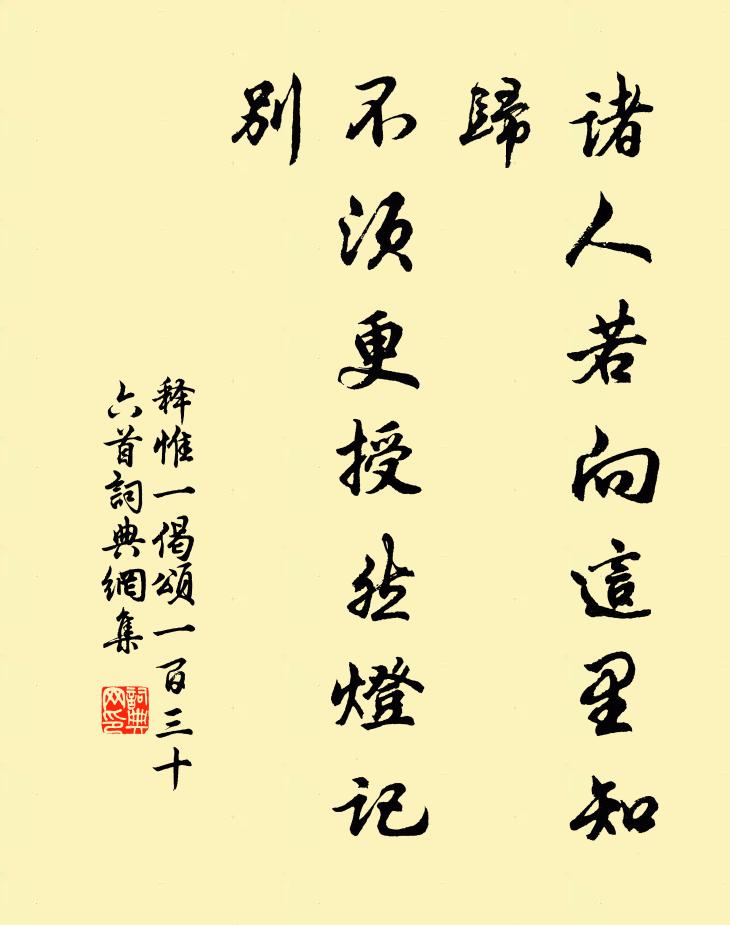 諸人若向這里知
歸
不須更授然燈記
別
释惟一偈頌一百三十
六首詞典網集
詞典
网印